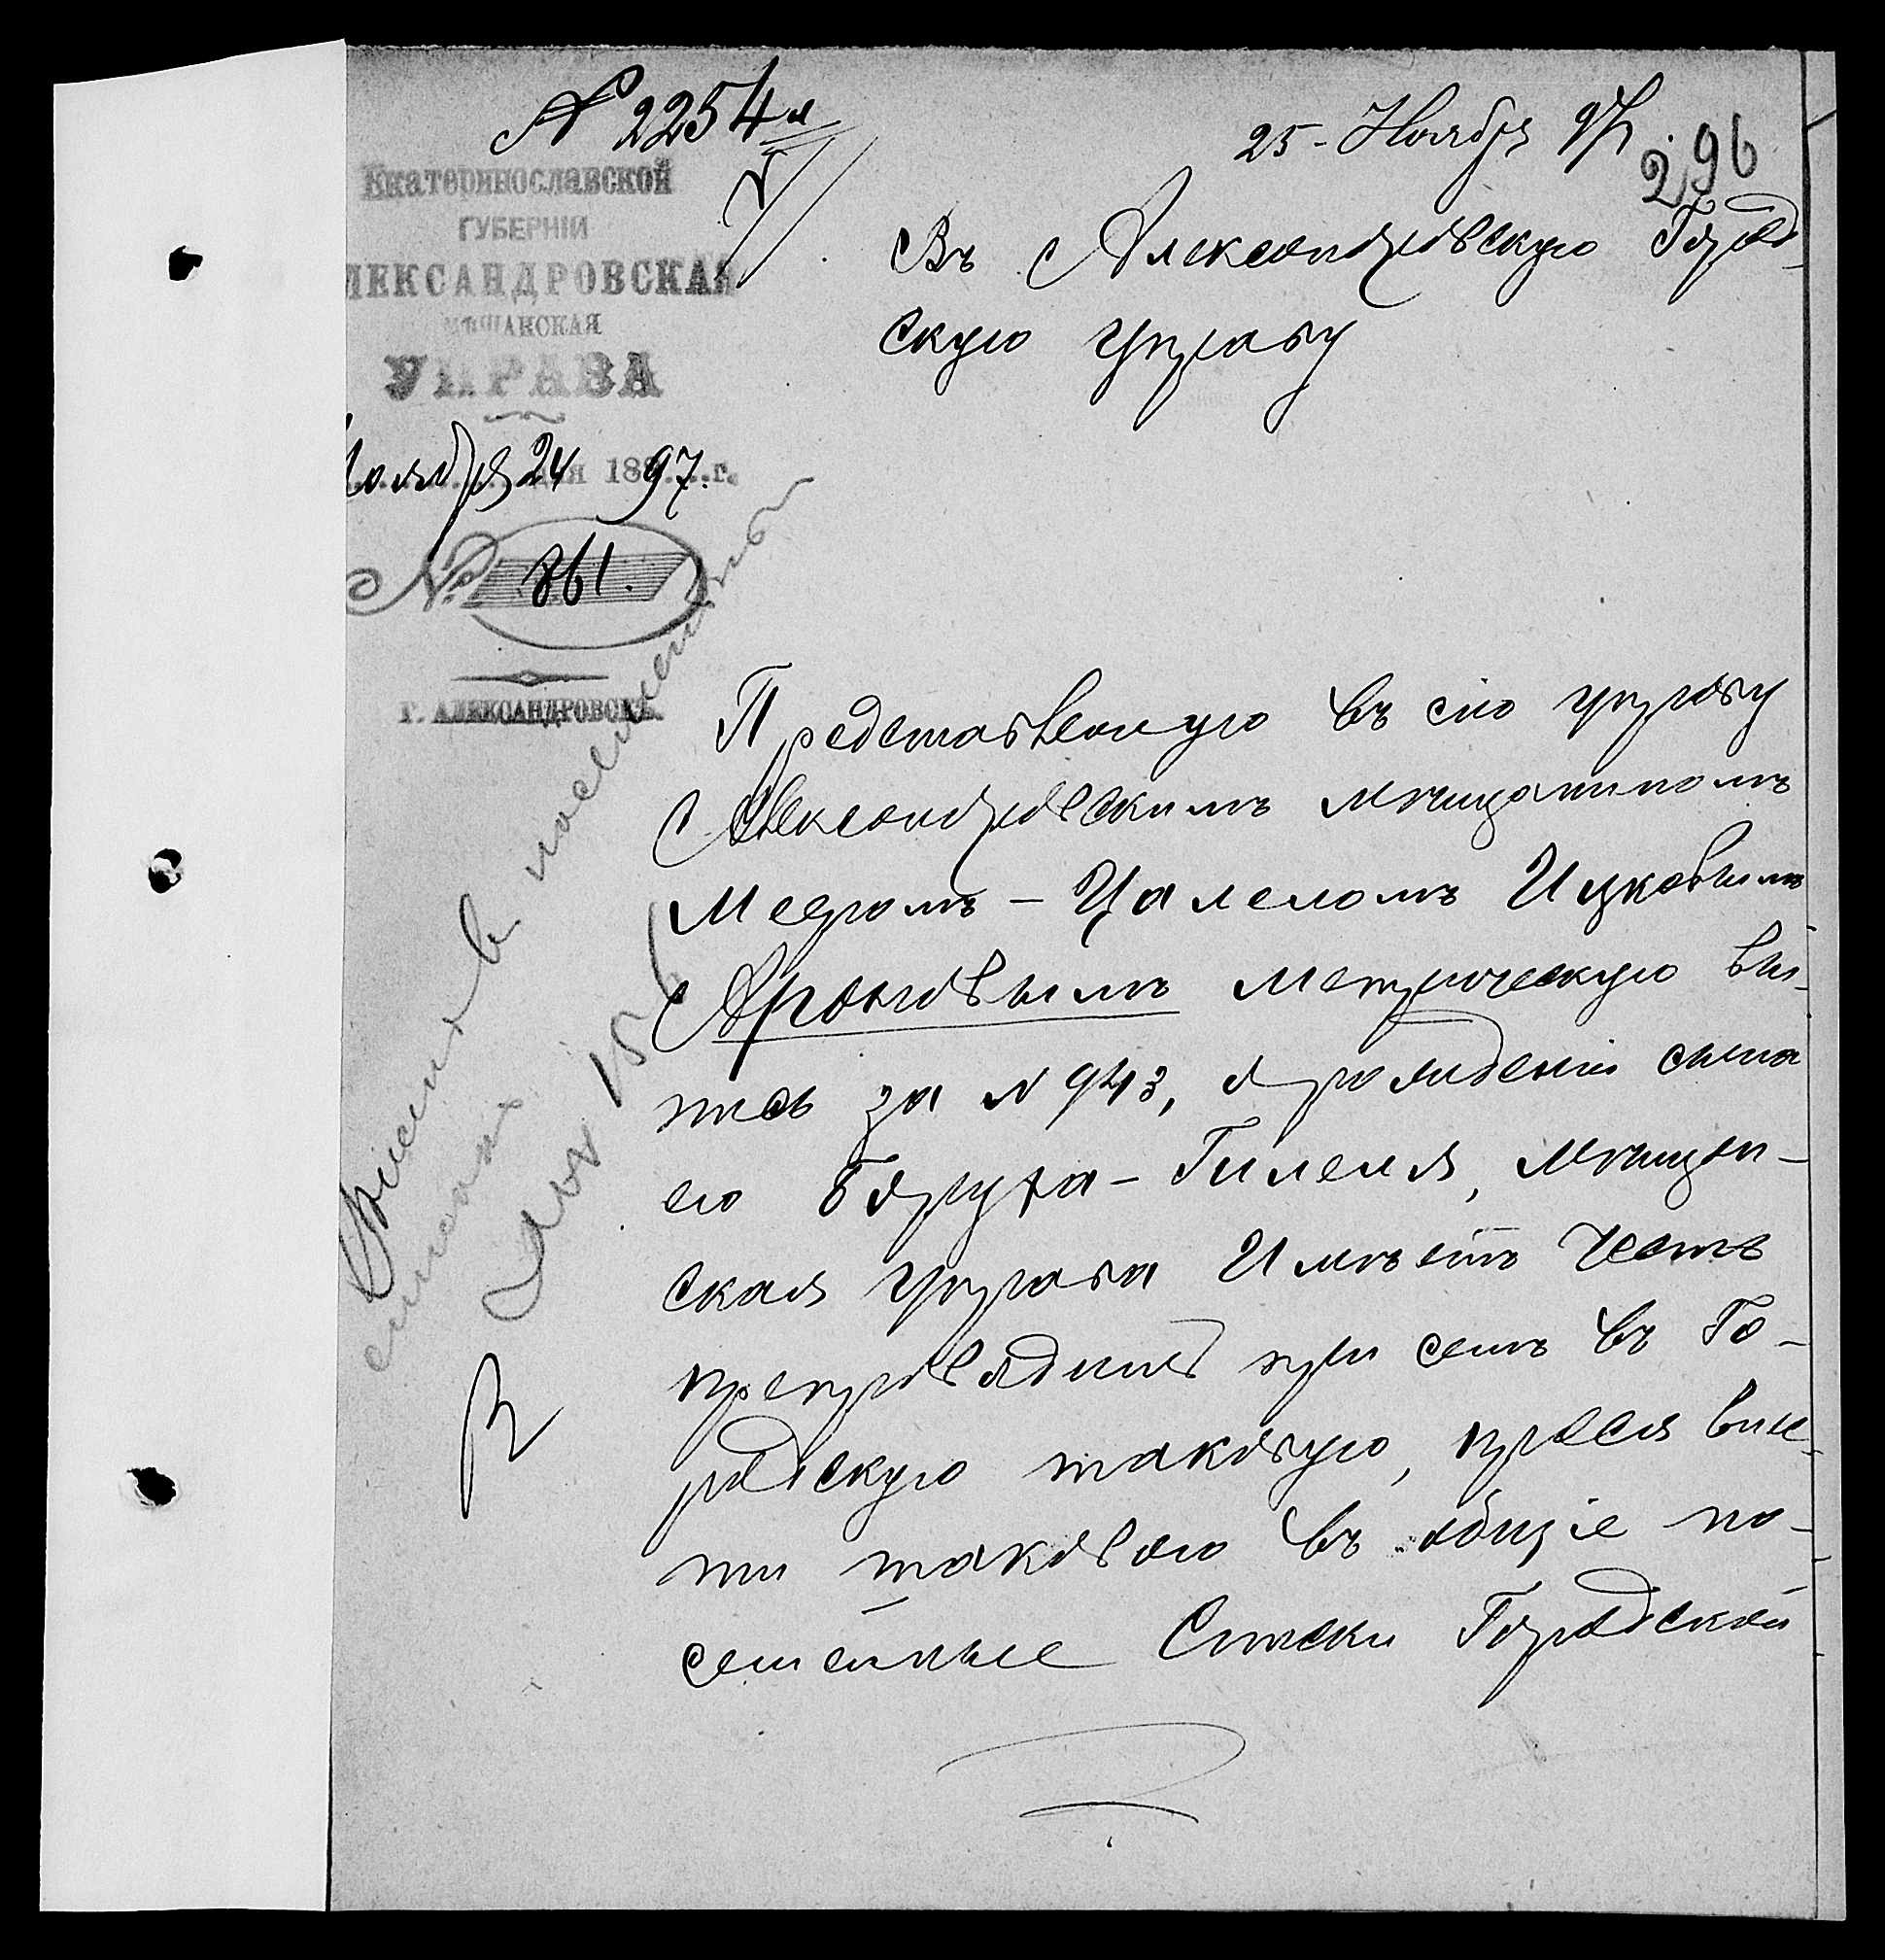 № 2254
25 - Ноября 97
296
Екатеринославской
ГУБЕРНІИ
ЛЕКСАНДРОВСКАЯ
МѢЩАНСКАЯ
УПРАВА
Ноября 24 дня 1897 г.
№ 861.
г. АЛЕКСАНДРОВСКЪ.
Въ Александровскую Город-
скую Управу
Представленную въ сію управу
Александровскимъ мѣщаниномъ
Меромъ - Цалеломъ Ицковымъ
Ароновымъ метрическую вы-
пись за № 943, о рожденіи сына
его Боруха - Гилеля, мѣщан-
ская управа имѣетъ честь
препроводить при семъ въ Го-
родскую таковую, прося внес-
ти таковаго въ общіе по-
семейные Списки Городской
Внесенъ в посемейный
списокъ